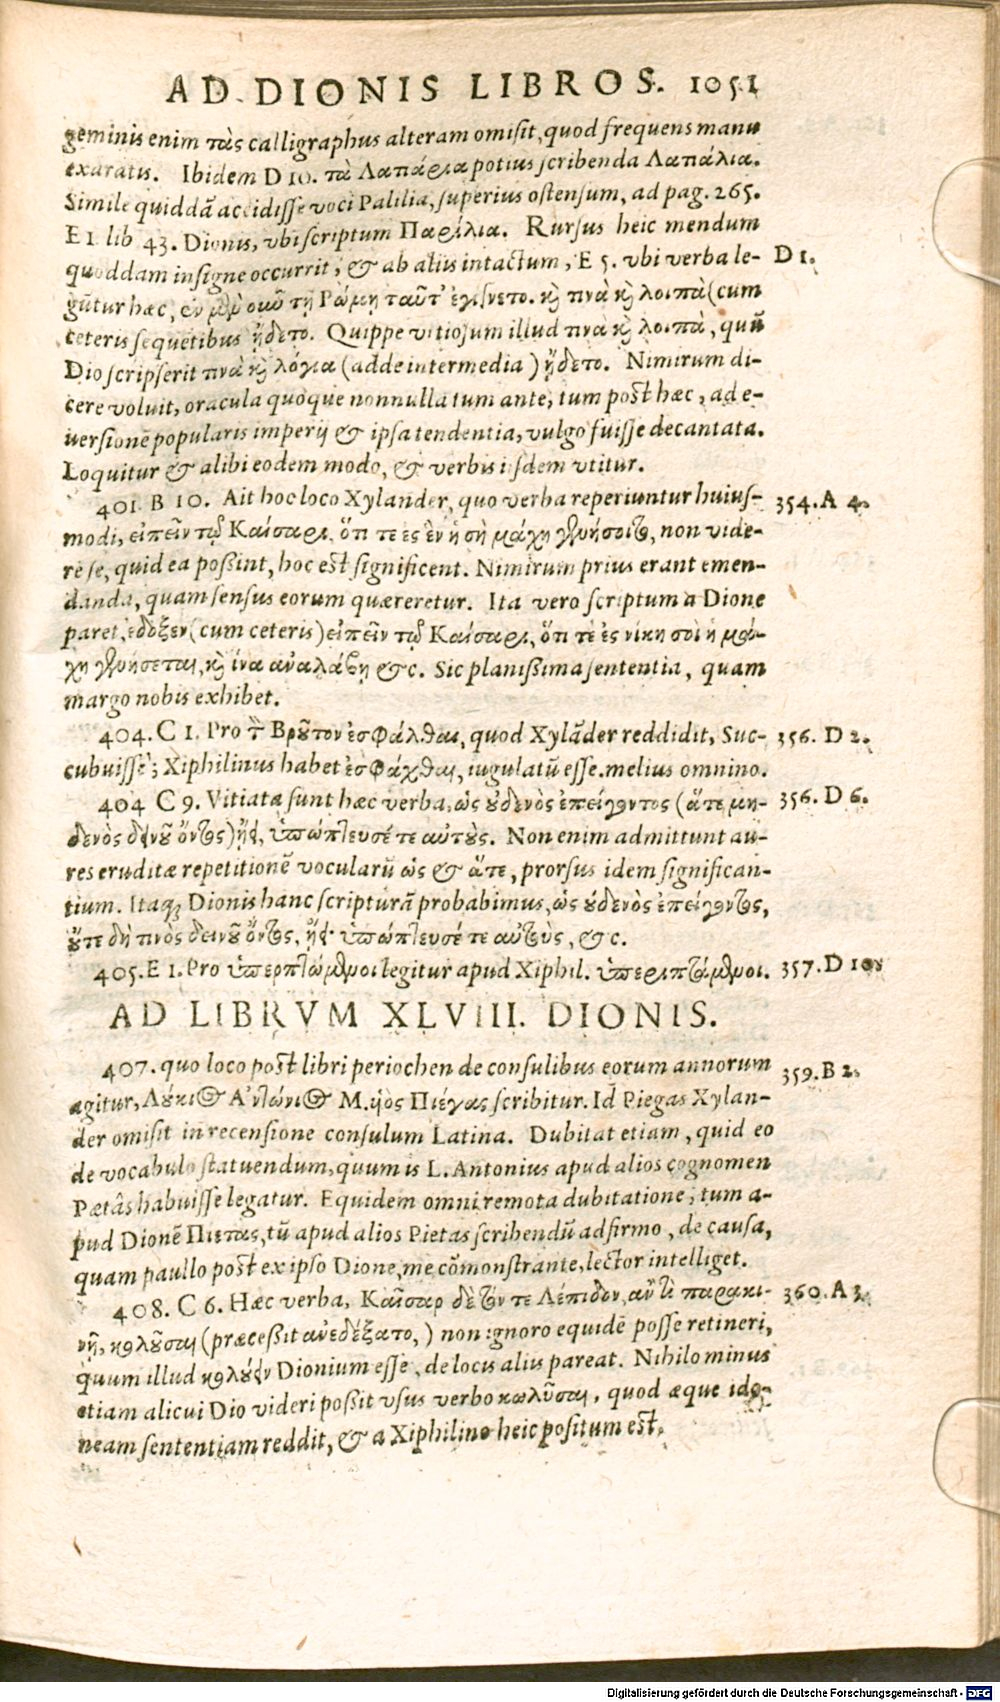 AD DIONIS LIBROS. 1051
geminis enim τὰς calligraphus alteram omisit, quod frequens manu
exaratis. Ibidem D 10. τὰ Λαπάρια potius scribenda Λαπάλια.
Simile quiddã accidisse voci Palilia, superius ostensum, ad pag. 265.
E 1. lib 43. Dionis, vbi scriptum Παρίλια. Rursus heic mendum
quoddam insigne occurrit, & ab aliis intactum, E 5. vbi verba le- D 1.
gũtur hæc, ἐν μὲν οὖν τῇ Ῥώμῃ ταῦτ' ἐγίγνετο. καὶ τινὰ καὶ λοιπὰ (cum
ceteris sequẽtibus ᾔδετο. Quippe vitiosum illud τινὰ καὶ λοιπὰ, quũ
Dio scripserit τινὰ καὶ λόγια (adde intermedia) ᾔδετο. Nimirum di-
cere voluit, oracula quoque nonnulla tum ante, tum post hæc, ad e-
uersionẽ popularis imperij & ipsa tendentia, vulgo fuisse decantata.
Loquitur & alibi eodem modo, & verbis iisdem vtitur.
401. B 10. Ait hoc loco Xylander, quo verba reperiuntur huius- 354. A 4.
modi, εἰπεῖν τῷ Καίσαρι, ὅτι τε ἐς ἓν ἡ σὴ μάχη γενήσοιτο, non vide-
re se, quid ea possint, hoc est significent. Nimirum prius erant emen-
danda, quam sensus eorum quæreretur. Ita vero scriptum a Dione
paret, ἔδοξεν (cum ceteris) εἰπεῖν τῷ Καίσαρι, ὅτι τε ἐς νίκην σοι ἡ μά-
χη γενήσεται, καὶ ἵνα ἀναλάβῃ &c. Sic planissima sententia, quam
margo nobis exhibet.
404. C 1. Pro τὸν Βροῦτον ἐσφάλθαι, quod Xylãder reddidit, Suc- 356. D 2.
cubuisse; Xiphilinus habet ἐσφάχθαι, iugulatũ esse. melius omnino.
404 C 9. Vitiata sunt hæc verba, ὡς οὐδενὸς ἐπείγοντος (ἅτε μη- 356. D 6.
δενὸς δεινοῦ ὄντος) ᾔει, ὑπώπτευσέ τε αὐτοὺς. Non enim admittunt au-
res eruditæ repetitionẽ vocularũ ὡς & ἅτε, prorsus idem significan-
tium. Itaq; Dionis hanc scripturã probabimus, ὡς οὐδενὸς ἐπείγοντος,
οὔτε δή τινὸς δεινοῦ ὄντος, ᾔει ὑπώπτευσέ τε αὐτοὺς, &c.
405. E 1. Pro ὑπερπτώμενοι legitur apud Xiphil. ὑπεριπτάμενοι. 357. D 10.
AD LIBRVM XLVIII. DIONIS.
407. quo loco post libri periochen de consulibus eorum annorum 359. B 2.
agitur, Λούκιος Ἀντώνιος Μ. υἱὸς Πιέγας scribitur. Id Piegas Xylan-
der omisit in recensione consulum Latina. Dubitat etiam, quid eo
de vocabulo statuendum, quum is L. Antonius apud alios cognomen
Pætâs habuisse legatur. Equidem omni remota dubitatione, tum a-
pud Dionẽ Πιετας, tũ apud alios Pietas scribendũ adfirmo, de causa,
quam paullo post ex ipso Dione, me cõmonstrante, lector intelliget.
408. C 6. Hæc verba, Καῖσαρ δὲ τόν τε Λέπιδον, ἄν τι παρακι- 360. A 3.
νῇ, κολοῦσαι (præcessit ἀνεδέξατο,) non ignoro equidẽ posse retineri,
quum illud κολούειν Dionium esse, de locis aliis pareat. Nihilo minus
etiam alicui Dio videri possit vsus verbo κωλῦσαι, quod æque ido-
neam sententiam reddit, & a Xiphilino heic positum est.
Digitalisierung gefördert durch die Deutsche Forschungsgemeinschaft - DFG